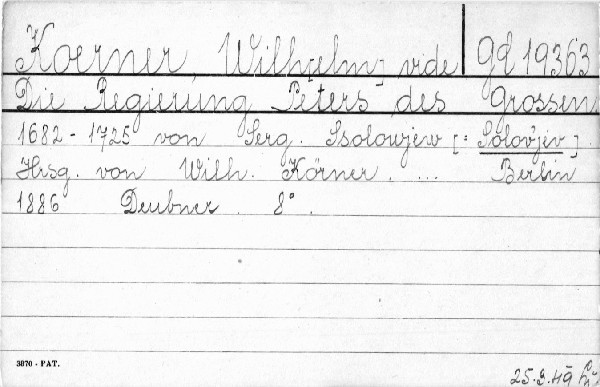 Koerner Wilhelm] vide Gd 19363
Die Regierung Peters des Grossen
1682-1725 von Serg. Ssolowjew [= Solovjiv].
Hrsg. von Wilh. Körner. ... Berlin
1886 Deubner. 8°.
3870 - PAT.
25.3.49